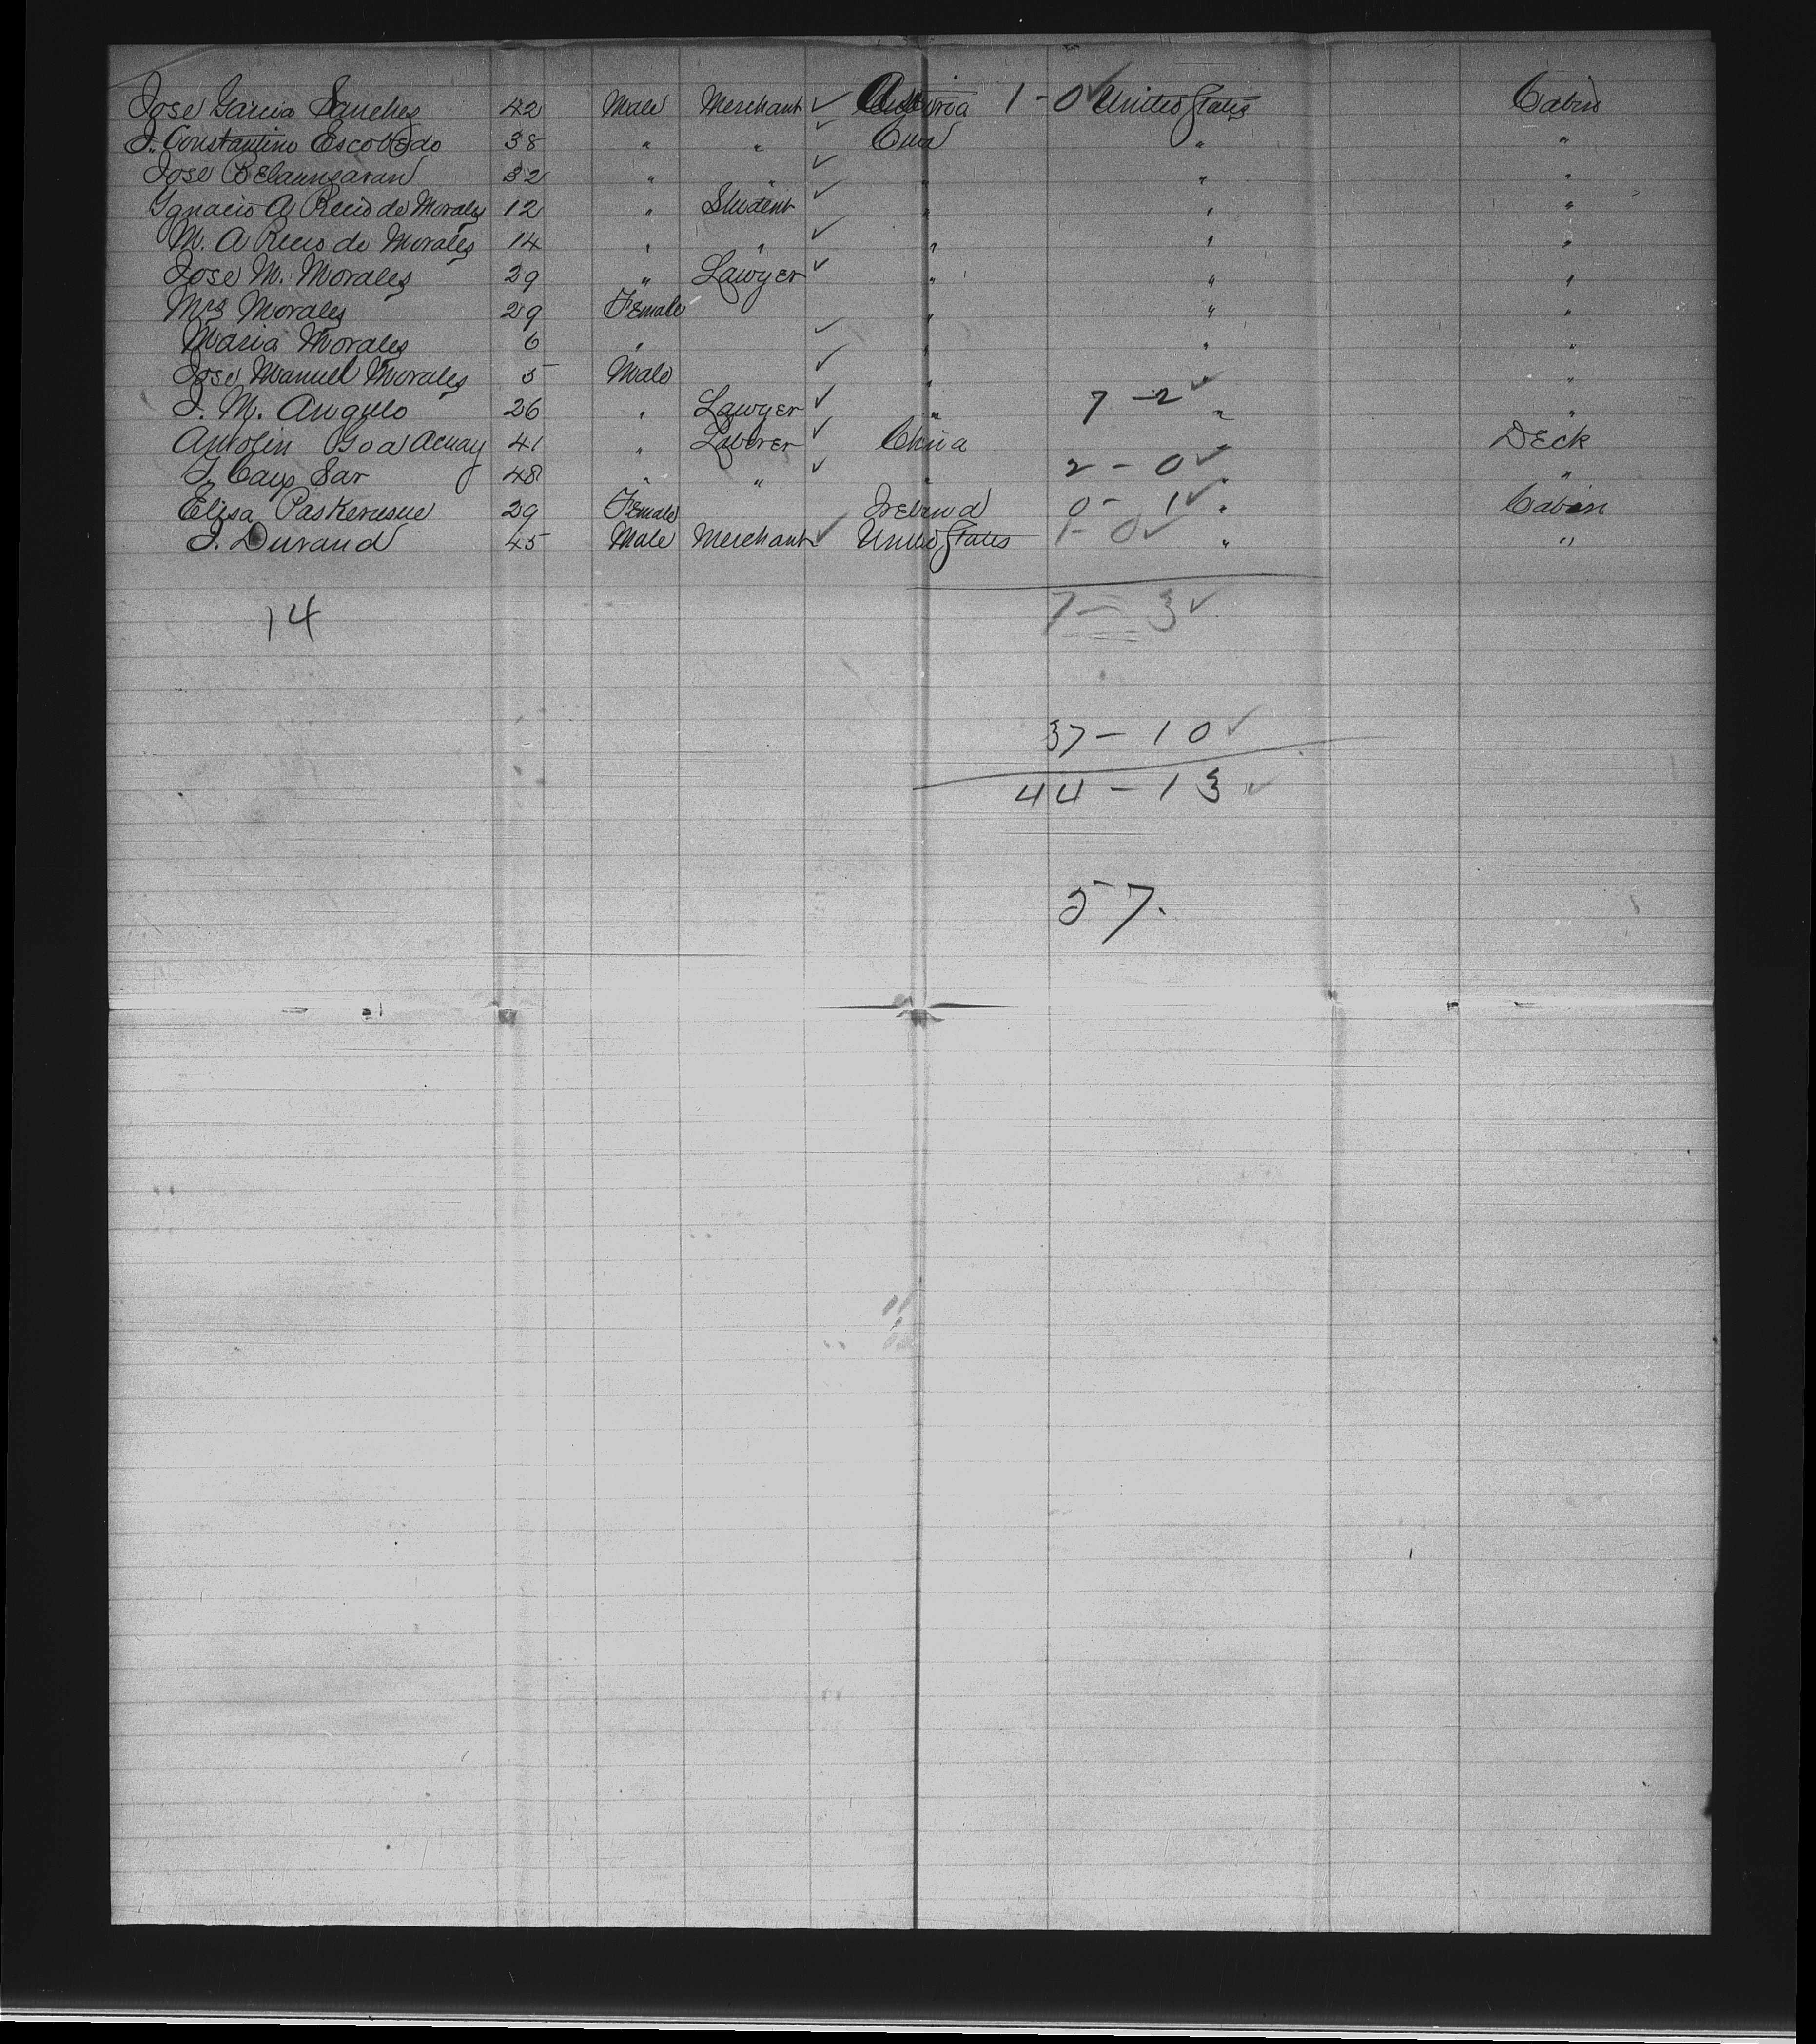 Jose Garcia Sanches 42 Male Merchant ✓ Austria 1-0 ✓ United States Cabin
J. Constantino Escobedo 38 " " ✓ Cuba " "
Jose Belaunzaran 32 " " ✓ " " "
Ignacio A Recio de Morales 12 " Student ✓ " " "
M. A Recio de Morales 14 " " ✓ " " "
Jose M. Morales 29 " Lawyer ✓ " " "
Mrs Morales 29 Female " " "
Maria Morales 6 " ✓ " " "
Jose Manuel Morales 5 Male ✓ " "
J. M. Angulo 26 " Lawyer ✓ " 7-2 ✓ " "
Antolin 41 " Laborer ✓ China " Deck
J. Cayo Sar 48 " " ✓ " 2-0 ✓ " "
Elisa 29 Female Ireland 0-1 ✓ " Cabin
J. Durand 45 Male Merchant ✓ United States 1-0 ✓ " "
14 7-3 ✓
37-10 ✓
44-13 ✓
57.